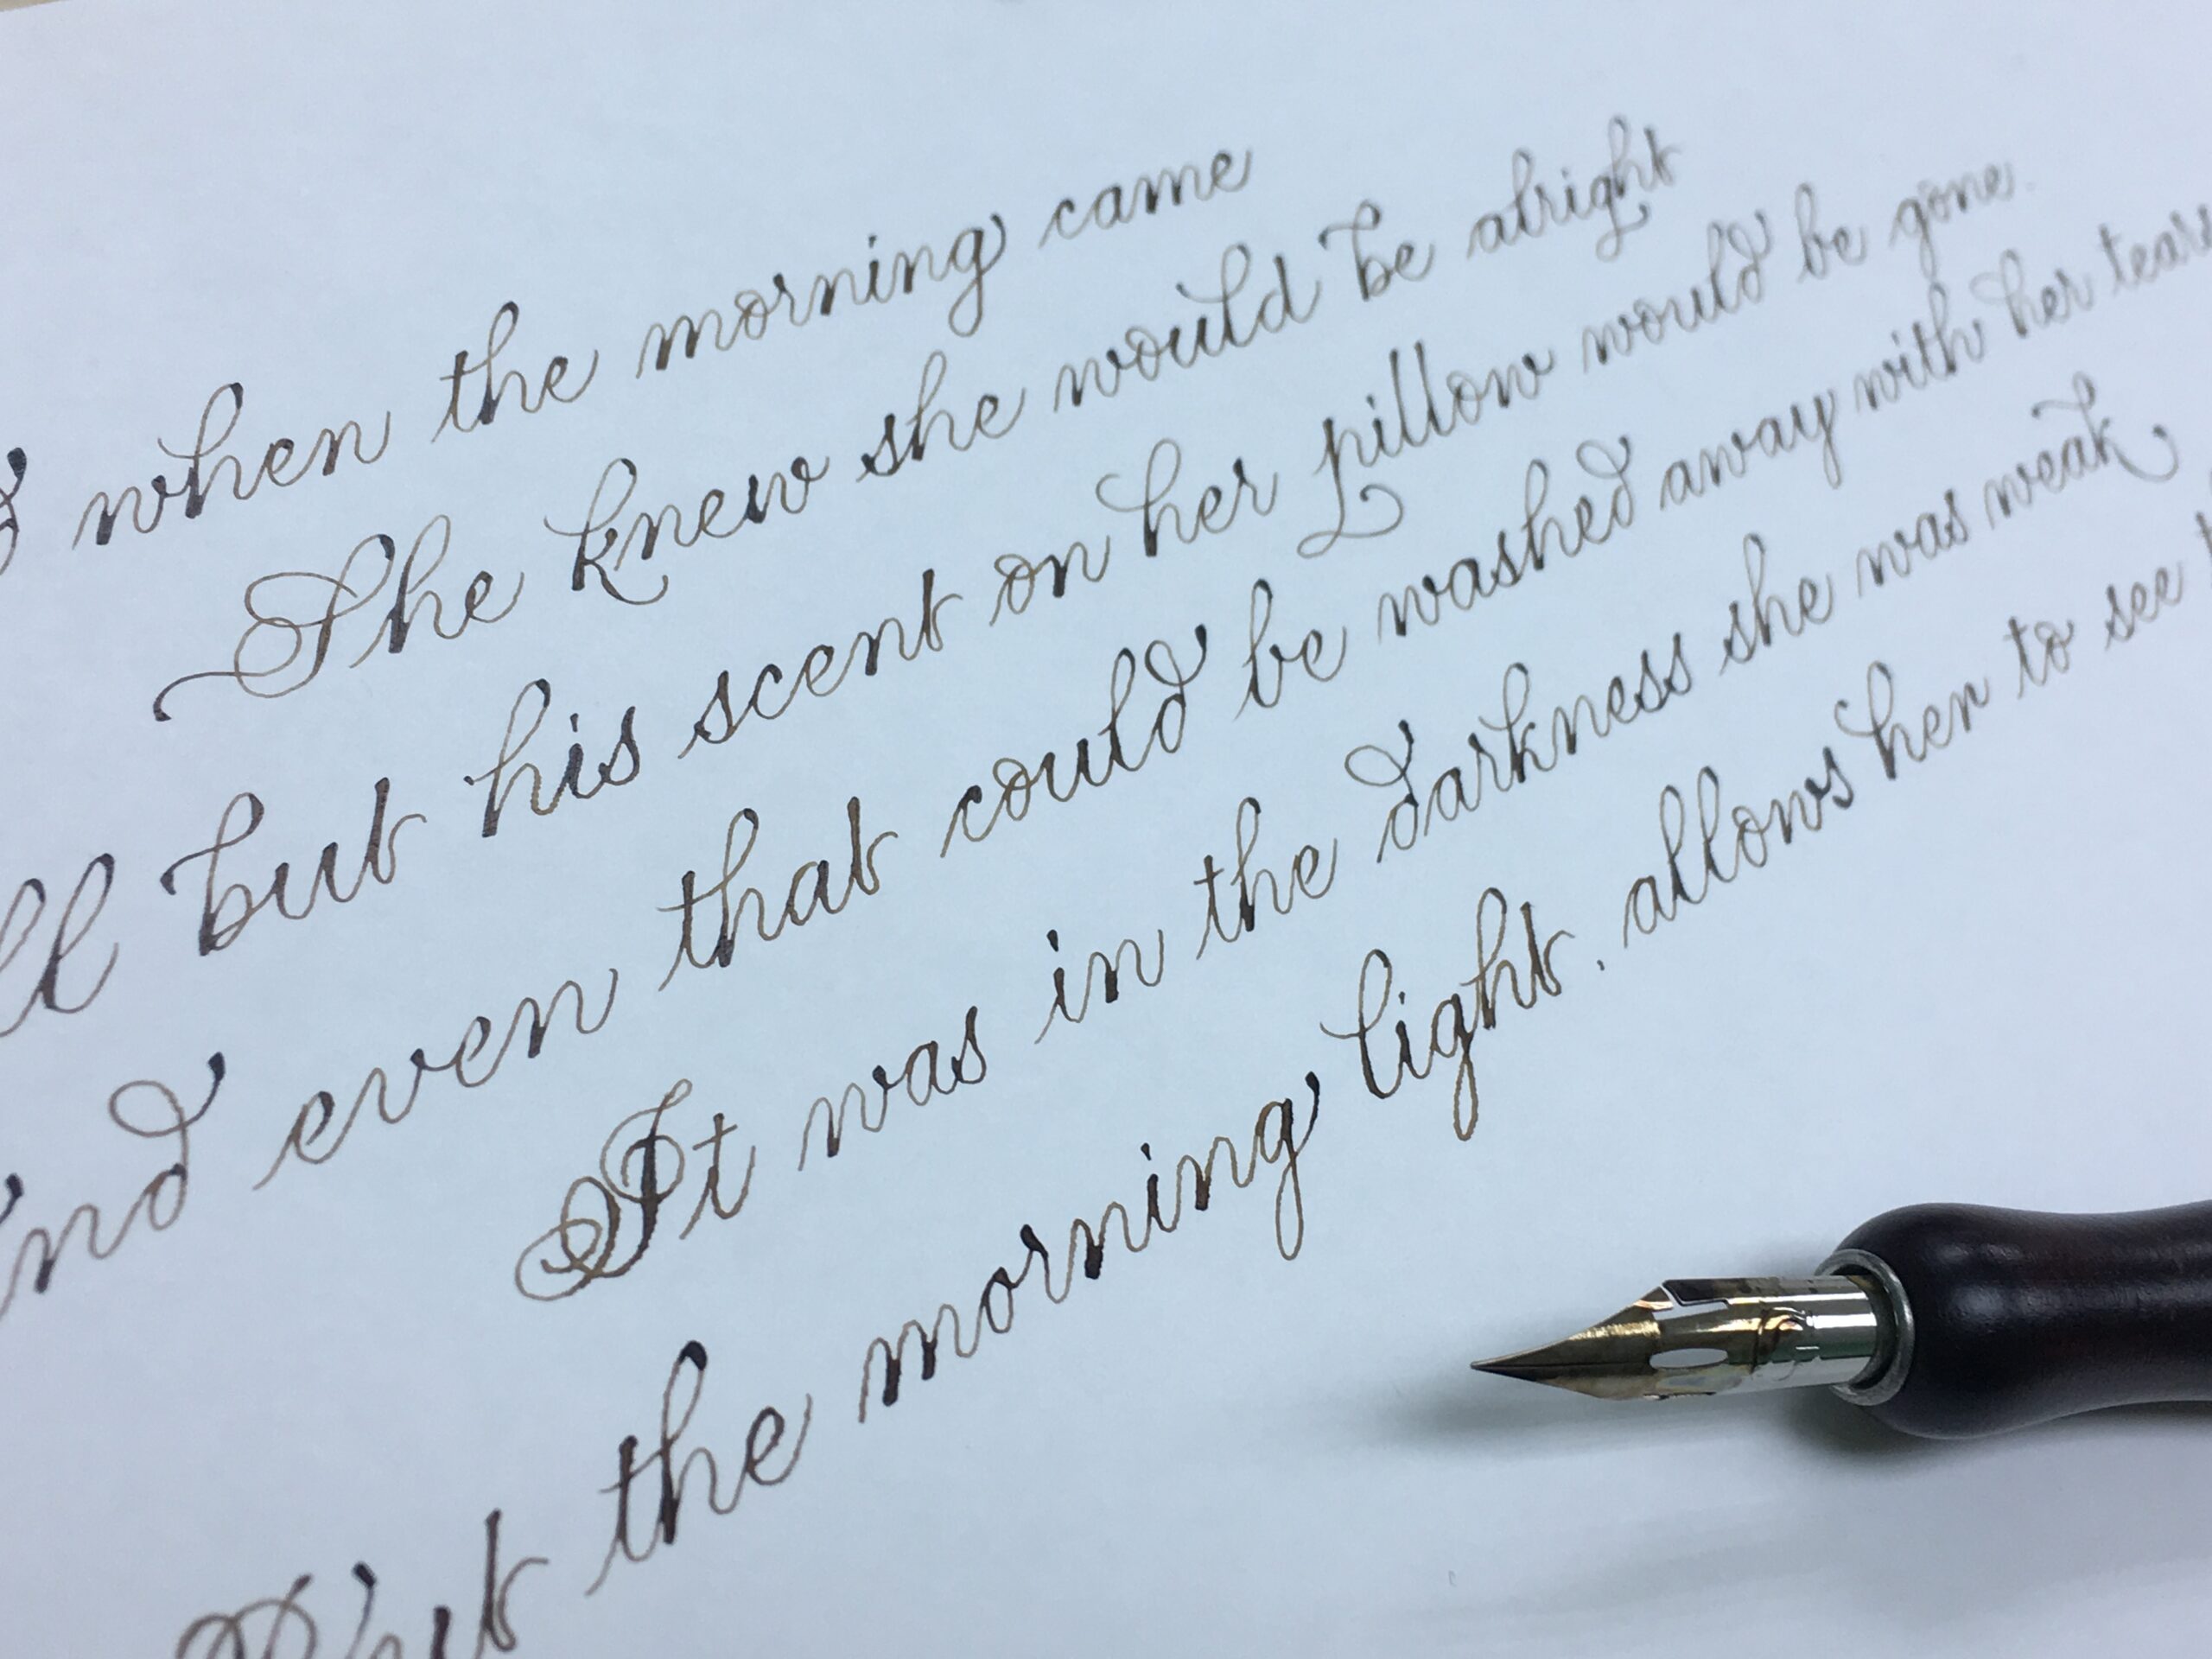 when the morning came
She knew she would be alright
but his scent on her pillow would be gone.
even that could be washed away with her tears
It was in the darkness she was weak
But the morning light. allows her to see